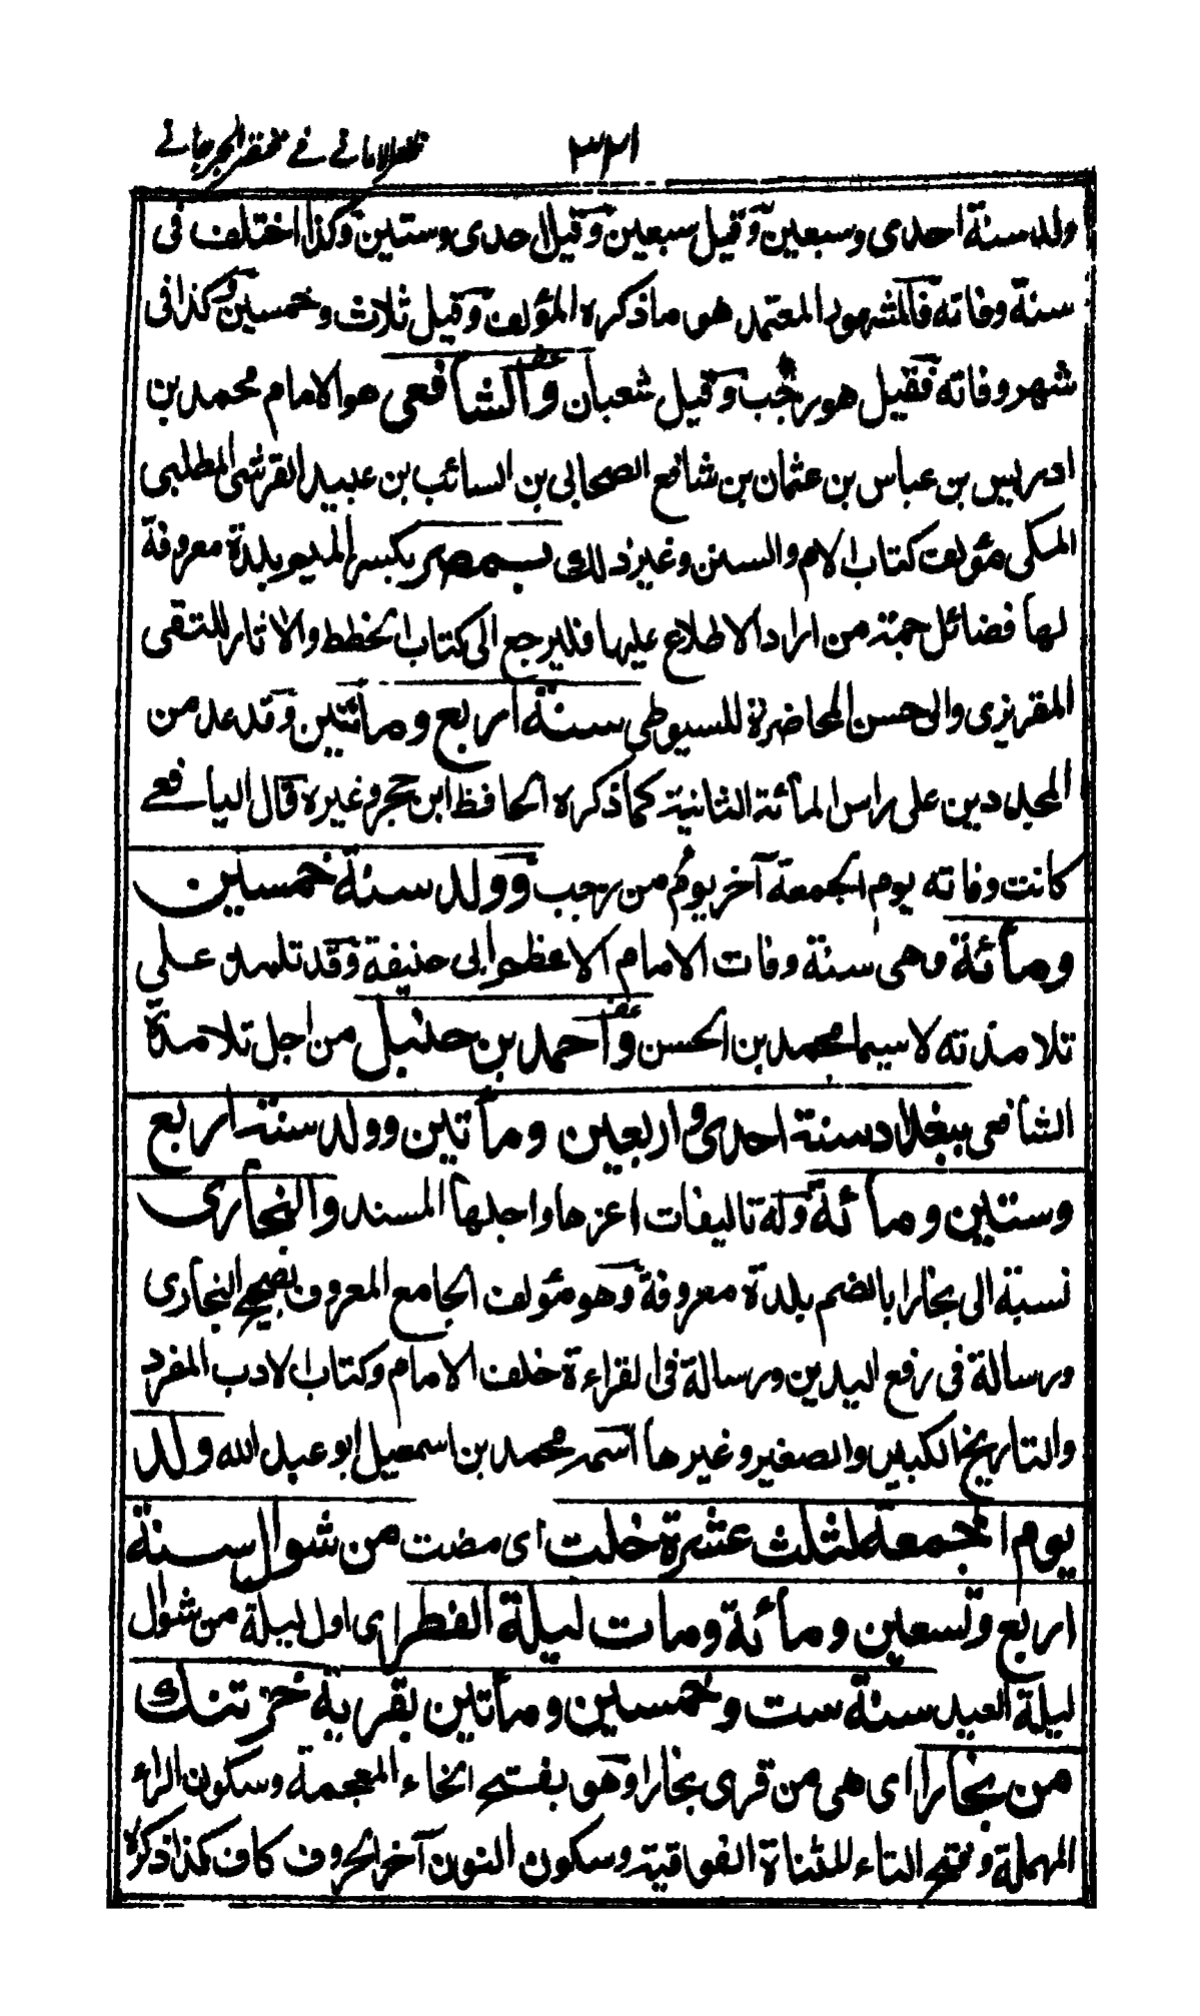 ٣٢١ ظفر الاماني في مختصر الجرجاني
ولد سنة احدى وسبعين وقيل سبعين وقيل احدى وستين وكذا اختلف فى
سنة وفاته فالمشهور المعتمد هو ما ذكره المؤلف وقيل ثلاث وخمسين وكذا فى
شهر وفاته فقيل هو رجب وقيل شعبان والشافعى هو الامام محمد بن
ادريس بن عباس بن عثمان بن شافع الصحابى بن السائب بن عبيد القرشى المطلبى
المكى مؤلف كتاب الام والسنن وغير ذلك بمصر بكسر الميم بلدة معروفة
لها فضائل جمة من اراد الاطلاع عليها فليرجع الى كتاب الخطط والاثار للتقى
المقريزى والى حسن المحاضرة للسيوطى سنة اربع ومائتين وقد عد من
المجددين على راس المائة الثانية كما ذكره الحافظ ابن حجر وغيره قال اليافعے
كانت وفاته يوم الجمعة آخر يوم من رجب وولد سنة خمسين
ومائة وهى سنة وفات الامام الاعظم ابى حنيفة وقد تلمذ على
تلامذته لاسيما محمد بن الحسن واحمد بن حنبل من اجل تلامذة
الشافعى ببغداد سنة احدى واربعين ومأتين وولد سنة اربع
وستين ومائة وله تاليفات اعزها واجلها المسند والبخارى
نسبة الى بخارا بالضم بلدة معروفة وهو مؤلف الجامع المعروف بصحيح البخارى
ورسالة فى رفع اليدين ورسالة فى القراءة خلف الامام وكتاب الادب المفرد
والتاريخ الكبير والصغير وغيرها اسمه محمد بن اسمعيل ابو عبد الله ولد
يوم الجمعة لثلث عشرة خلت اى مضت من شوال سنة
اربع وتسعين ومائة ومات ليلة الفطر اى اول ليلة من شوال
ليلة العيد سنة ست وخمسين ومأتين بقرية خرتنك
من بخارا اى هى من قرى بخارا وهو بفتح الخاء المعجمة وسكون الراء
المهملة وفتح التاء المثناة الفوقية وسكون النون آخر الحروف كاف كذا ذكره